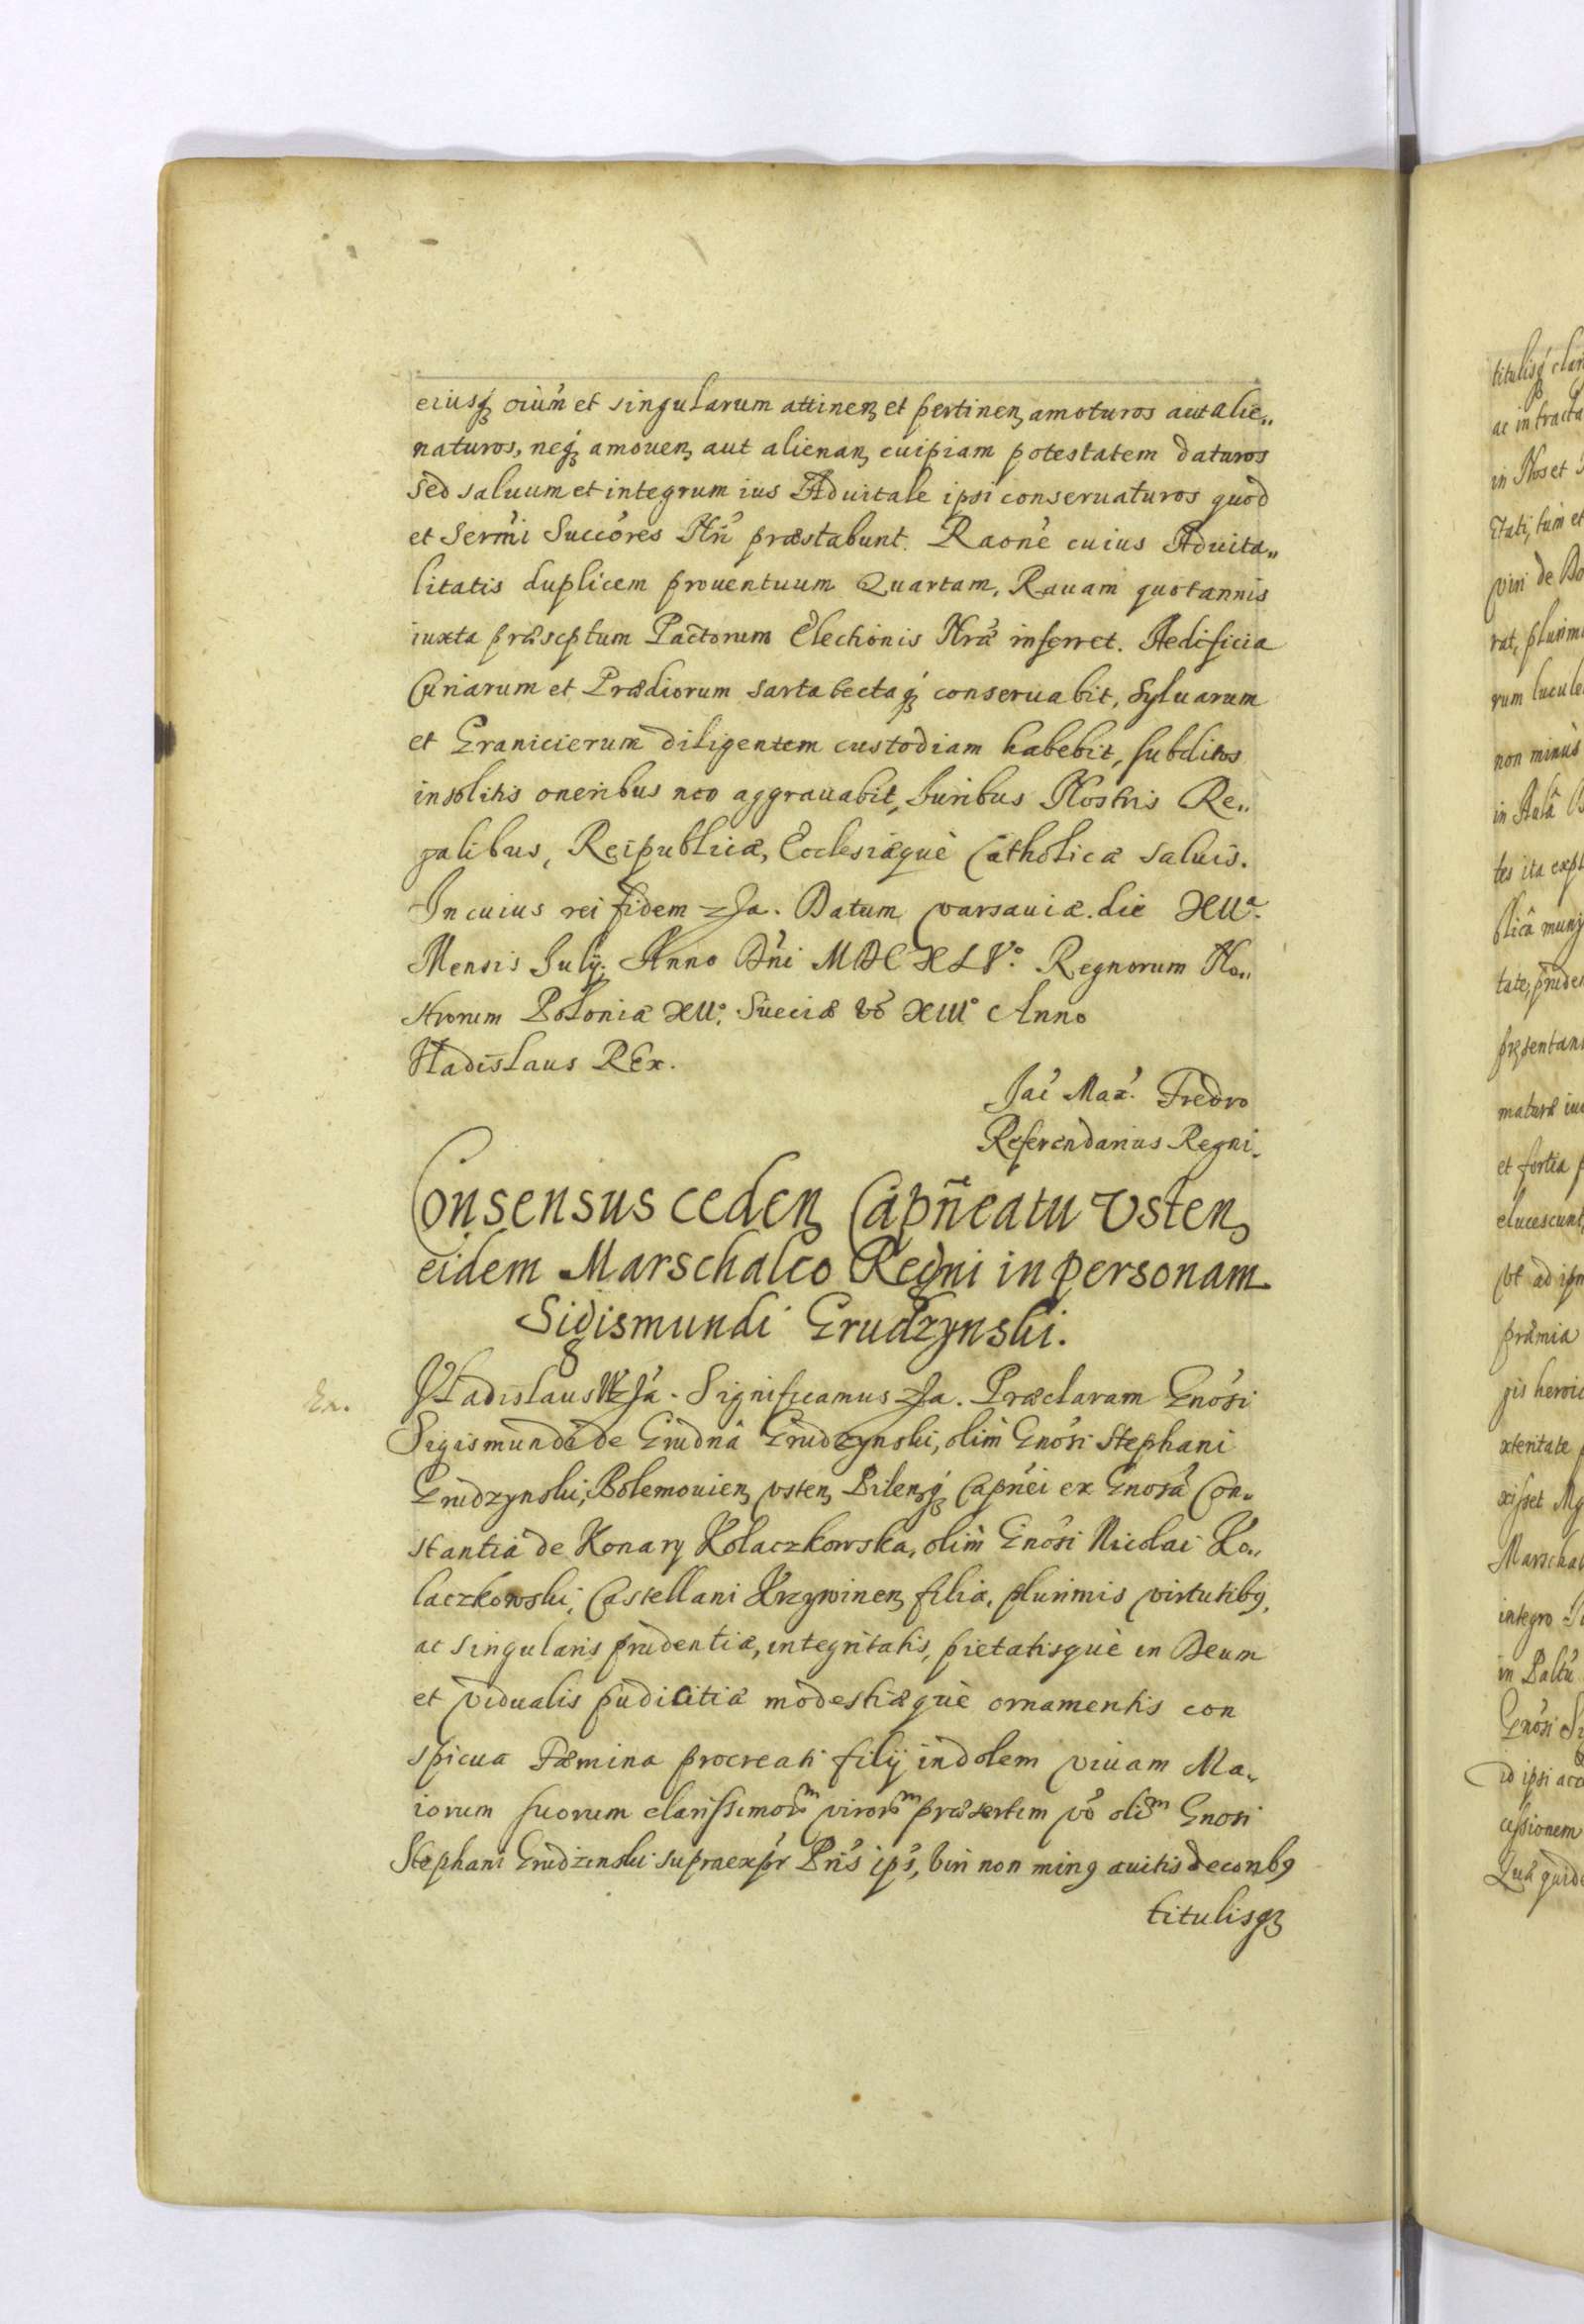 eiusq́ꝫ oiúm et singularum attinenꝫ et pertinenꝫ amoturos aut alie„
naturos, neq́ꝫ amouenꝫ aut alienanꝫ cuipiam potestatem daturos
Sed saluum et integrum ius Aduitale ipsi conseruaturos quod
et Sermi Succóres Nri præstabunt. Raone cuius Aduita„
litatis duplicem prouentuum Quartam, Rauam quotannis
iuxta præscptum Pactorum Electionis Nræ inferret. Aedificia
Curiarum et Prædiorum sarta tectaq́ꝫ conseruabit, Syluarum
et Granicierum diligentem custodiam habebit, subditos
insolitis oneribus non aggrauabit, Iuribus Nostris Re„
galibus, Reipublicæ, Ecclesiæquè Catholicæ saluis.
In cuius rei fidem etc̃a. Datum Varsauiæ die XIIa.
Mensis Iulij. Anno Dńi MDCXLVo. Regnorum No„
strorum Poloniæ XIIo. Sueciæ vó XIIIo Anno
Vladislaus REx.
Jać Max. Fredro
Referendarius Regni.
Consensus cedenꝫ Capñeatu Vstenꝫ
eidem Marschalco Regni in personam
Sigismundi Grudzynski.
Vladislaus IVtus etc̃a. Significamus etc̃a. Præclaram Gnosi
Sigismundi de Grudna Grudzynski, olim Gnosi Stephani
Grudzynski, Bolemouienꝫ Vstenꝫ Pilenq́ꝫ Capńei ex Gnosa Con„
stantia de Konary Kolaczkowska, olim Gnosi Nicolai Ko„
laczkowski, Castellani Krzywinenꝫ filia, plurimis virtutibꝰ,
ac singularis prudentiæ, integritatis, pietatisquè in Deum
et vidualis pudicitiæ modestiæquè ornamentis con
spicua Fæmina procreati filij indolem viuam Ma„
iorum suorum clarissimorm virorm præsertim vó olim Gnosi
Stephani Grudzinski supraexpr Pris ips, viri non minꝰ auitis decoribꝰ
titulisqꝫ
Ex.